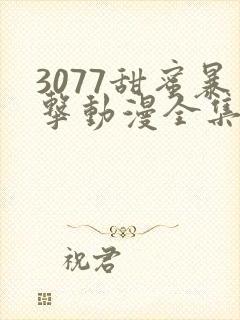 3077甜蜜暴
擊動漫全集
祝君